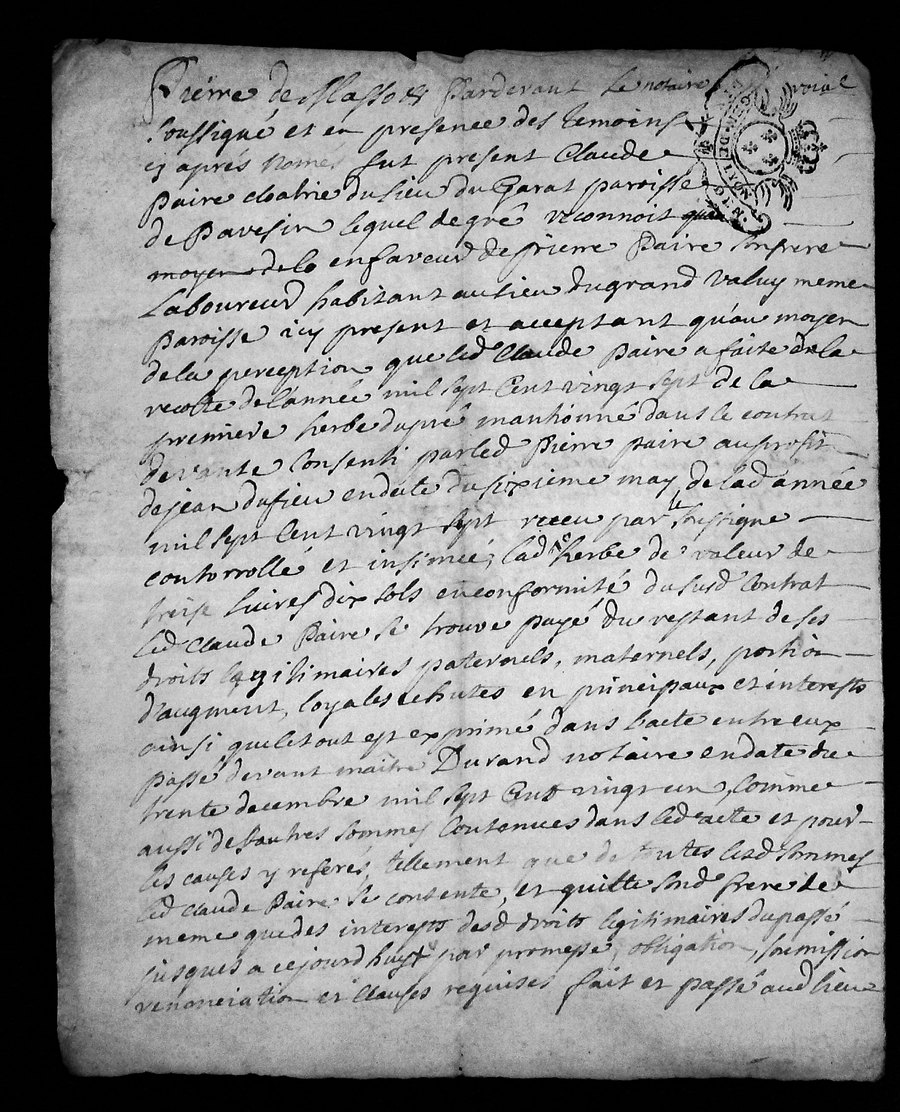 Pierre de Masso & Pardevant Le notaire roial
soussigné et en presence des temoins
cy aprés només fut present Claude
Paire cloatrie du lieu du Garat paroisse
de Pavesin lequel de gré reconnoit que
moyen de la en faveur de pierre Paire son frere
Laboureur habitant au lieu du grand valuy meme
Paroisse icy present et acceptant qu'au moyen
de la perception que led Claude Paire a faite de la
recolte de l'année mil sept Cent vingt sept de la
premiere herbe du pré mantionné dans le contrat
de vante Consenti par led Pierre paire au profit
de jean dufieu en date du sixieme may de lad année
mil sept Cent vingt sept receu par le soussigne
contorrollé et insinué; lad herbe de valeur de
treize livres dix sols en conformité du susd Contrat
led Claude Paire se trouve payé du restant de ses
droits legitimaires paternels, maternels, portion
d'augment, loyales echutes en principaux et interests
ainsi que le tout est exprimé dans l'acte entre eux
passé devant maitre Durand notaire en date du
trente decembre mil sept Cent vingt un, comme
aussi des autres sommes Contenues dans led acte et pour
les causes y referés, tellement que de toutes lesd sommes
led Claude Paire se contente, et quitte sond frere de
meme que des interests desd droits legitimaires du passé
jusques a cejourd'huy par promesse, obligation, soumission
renonciation et Clauses requises fait et passé aud lieu
GEN. DE LYON